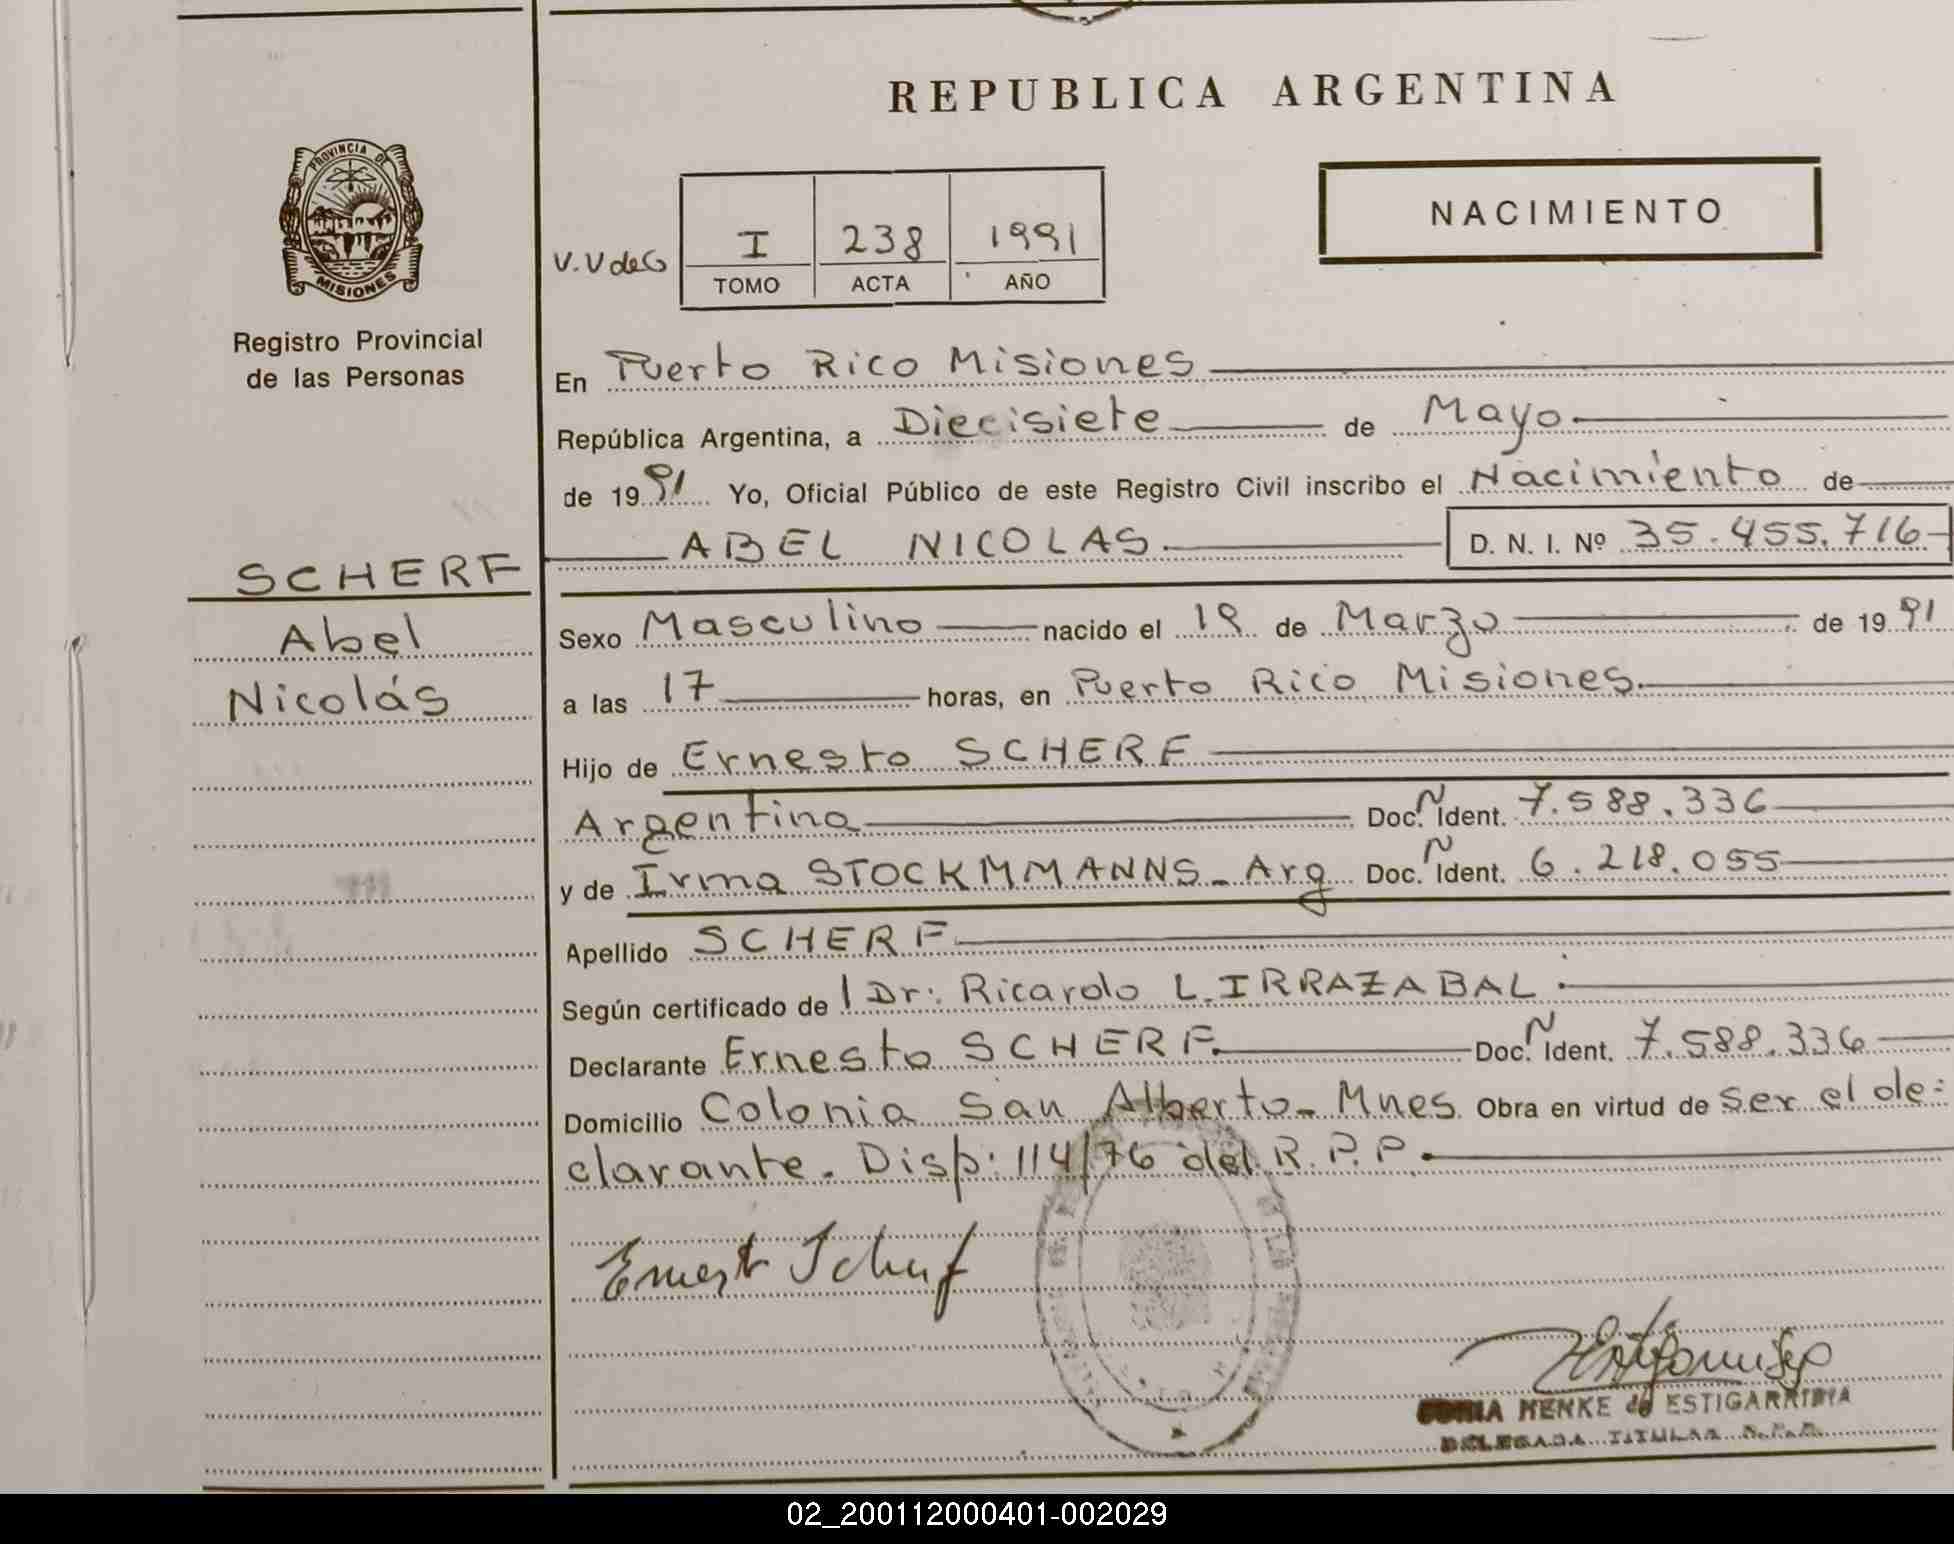 REPUBLICA ARGENTINA
PROVINCIA DE
MISIONES
Registro Provincial
de las Personas
NACIMIENTO
V.V de G
I 238 1991
TOMO ACTA AÑO
En Puerto Rico Misiones
República Argentina, a Diecisiete de Mayo
de 1991 Yo, Oficial Público de este Registro Civil inscribo el Nacimiento de
ABEL NICOLAS D. N. I. Nº 35.455.716
SCHERF
Abel
Nicolás
Sexo Masculino nacido el 19 de Marzo de 1991
a las 17 horas, en Puerto Rico Misiones
Hijo de Ernesto SCHERF
Argentino Doc. N Ident. 7.588.336
y de Irma STOCKMMANNS - Arg Doc. N Ident. 6.218.055
Apellido SCHERF
Según certificado de Dr: Ricardo L. IRRAZABAL
Declarante Ernesto SCHERF Doc. N Ident. 7.588.336
Domicilio Colonia San Alberto - Mnes Obra en virtud de ser el de:
clarante. Disp: 114/76 del R.P.P.
Ernesto Scherf
SONIA HENKE de ESTIGARRIBIA
DELEGADA TITULAR R.P.P.
02_200112000401-002029